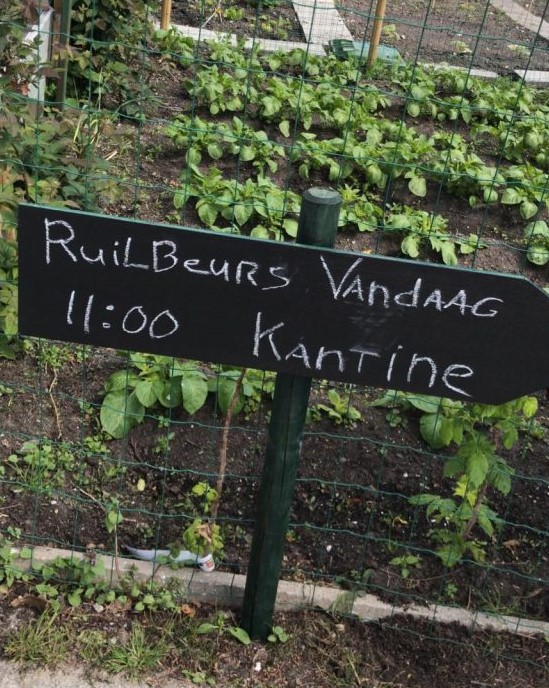 RuilBeurs Vandaag
11:00 Kantine